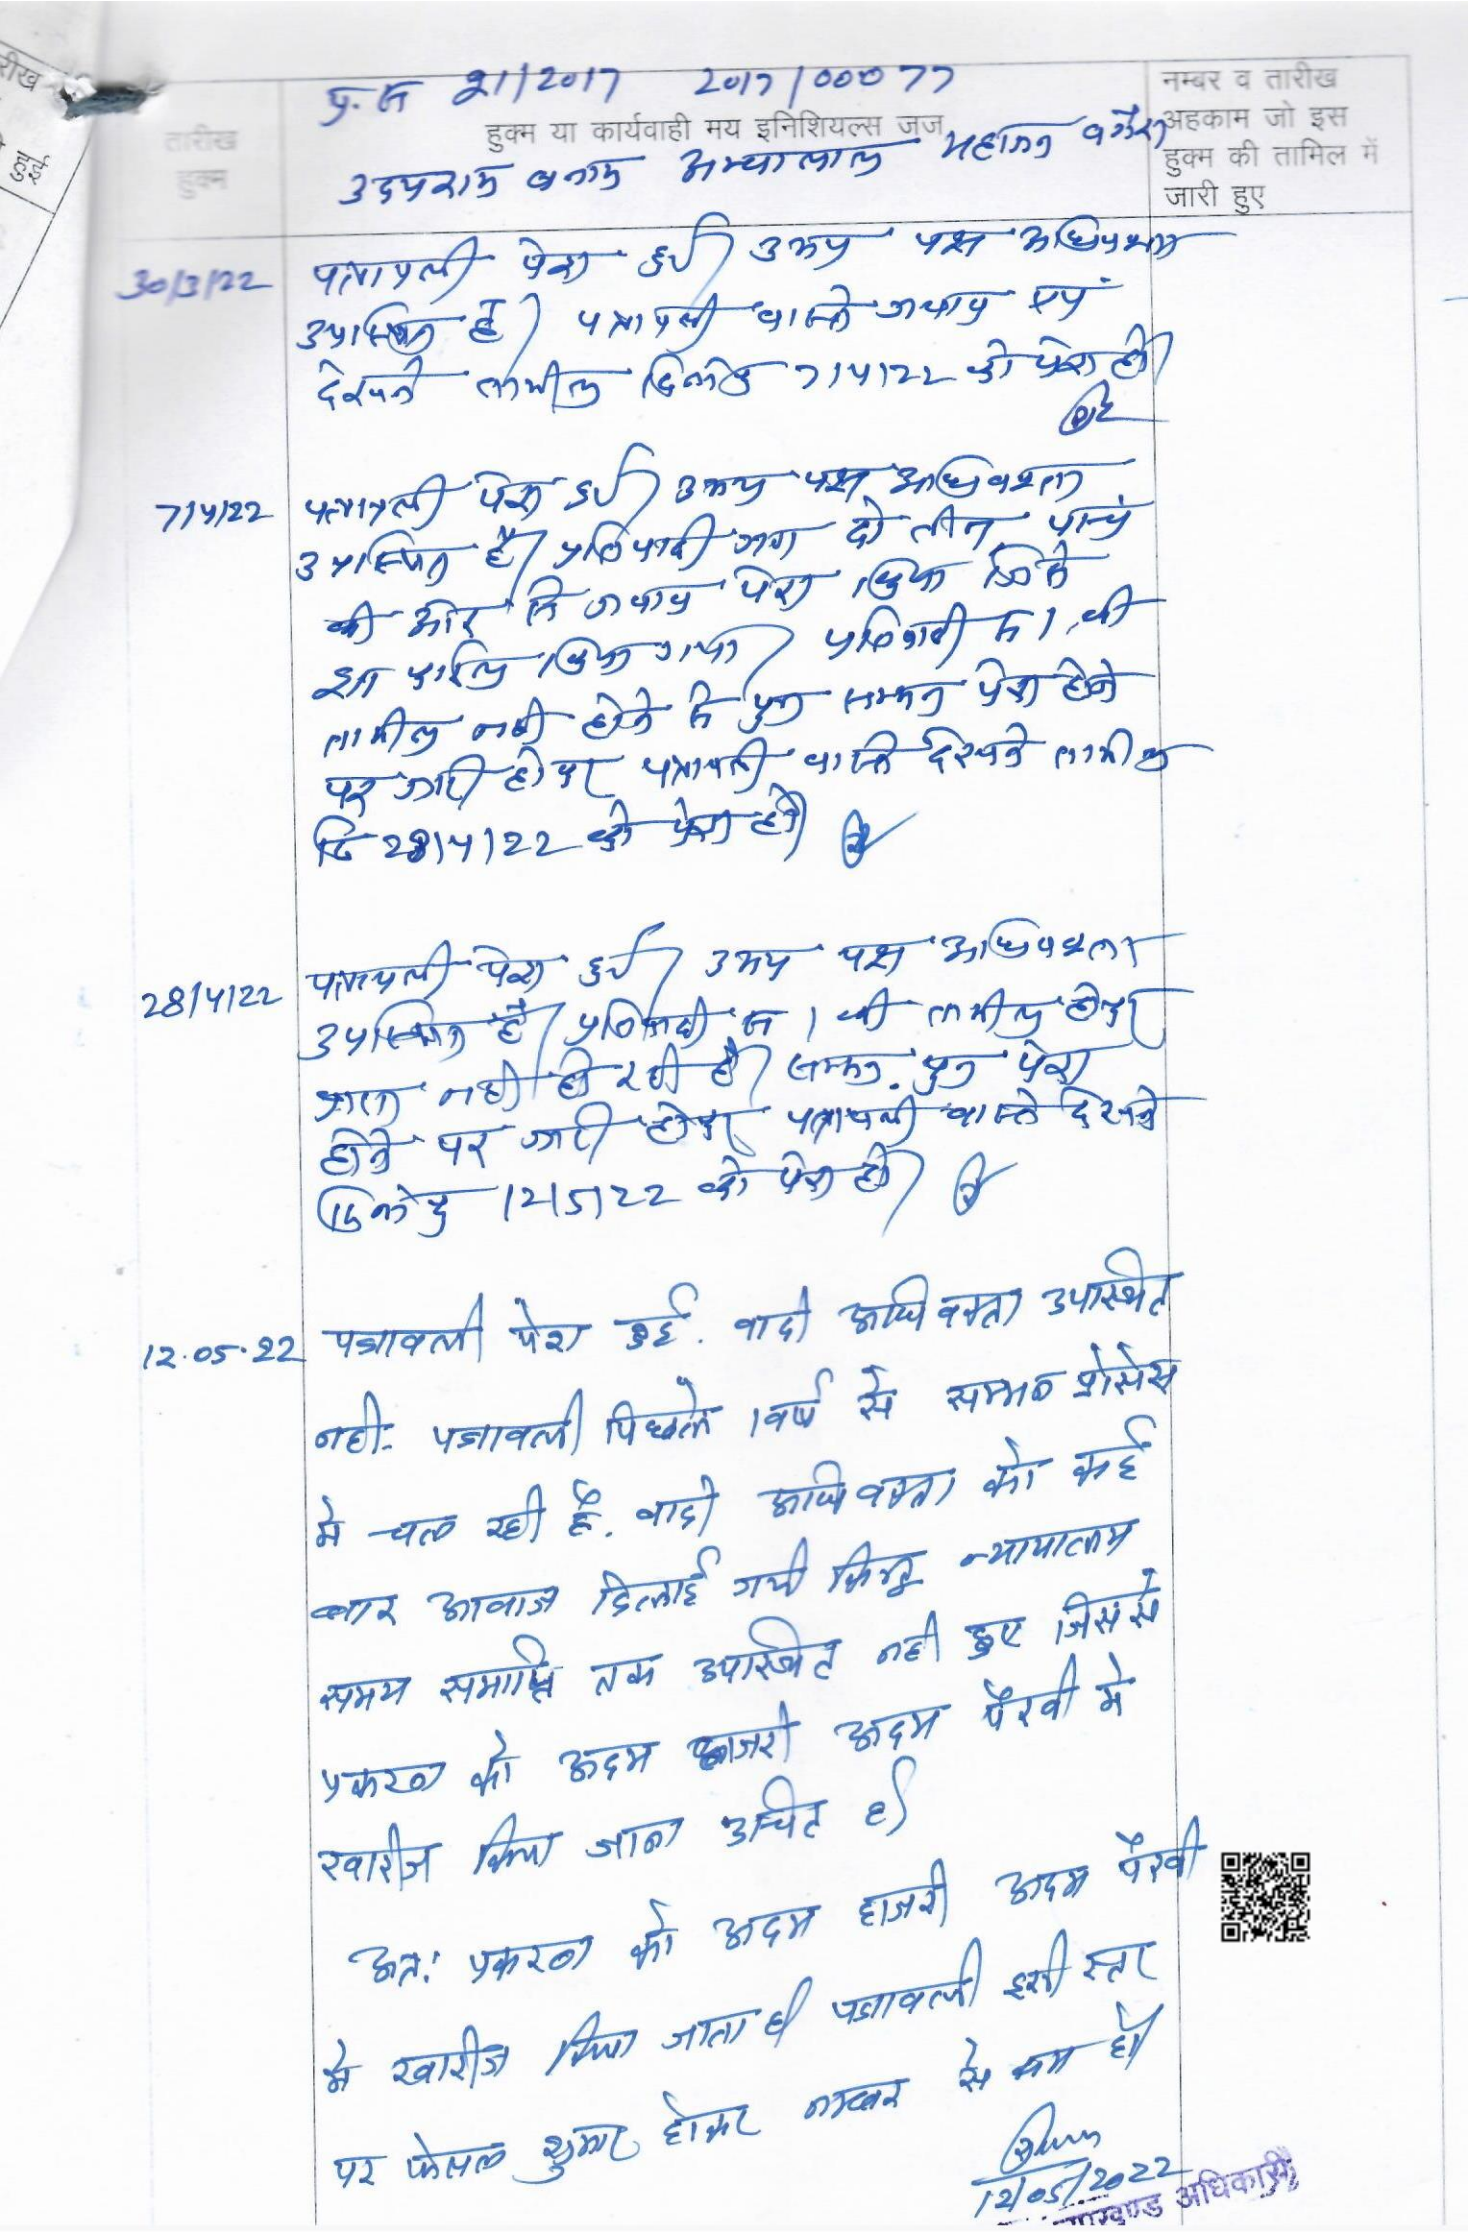 रीख
हुई
प्र.स 21/2017 2017/00077
तारीख
हुक्म
हुक्म या कार्यवाही मय इनिशियल्स जज
नम्बर व तारीख
अहकाम जो इस
हुक्म की तामिल में
जारी हुए
उदयराम बनाम महाजन वगैरा
30/3/22 पत्रावली पेश हुई। उभय पक्ष अधिवक्ता
उपस्थित है। पत्रावली वास्ते जवाब एवं
देखने तामील दिनांक 7/4/22 को पेश हो।
7/4/22 पत्रावली पेश हुई। उभय पक्ष अधिवक्ता
उपस्थित है। प्रतिवादी गण दो तीन पान्च
की ओर से जवाब पेश किया जिसे
किया गया। प्रतिवादी स 1 की
तामील नही होने से पुन सम्मन पेश होने
पर जारी होकर पत्रावली वास्ते देखने तामील
दि 28/4/22 को पेश हो।
28/4/22 पत्रावली पेश हुई। उभय पक्ष अधिवक्ता
उपस्थित है। प्रतिवादी स 1 की तामील होकर
प्राप्त नही हो रही है। सम्मन पुन पेश
होने पर जारी होकर पत्रावली वास्ते देखने
दिनांक 12/5/22 को पेश हो।
12.05.22 पत्रावली पेश हुई. वादी अधिवक्ता उपस्थित
नही. पत्रावली पिछले 1 वर्ष से सम्मन प्रोसेस
मे चल रही है. वादी अधिवक्ता को कई
बार आवाज दिलाई गयी किन्तु न्यायालय
समय समाप्ति तक उपस्थित नही हुए जिससे
प्रकरण को अदम हाजरी अदम पैरवी मे
खारीज किया जाना उचित है।
अतः प्रकरण को अदम हाजरी अदम पैरवी
मे खारीज किया जाता है। पत्रावली इसी स्तर
पर फेसल शुमार होकर नम्बर से कम हो।
12/05/2022
अधिकारी